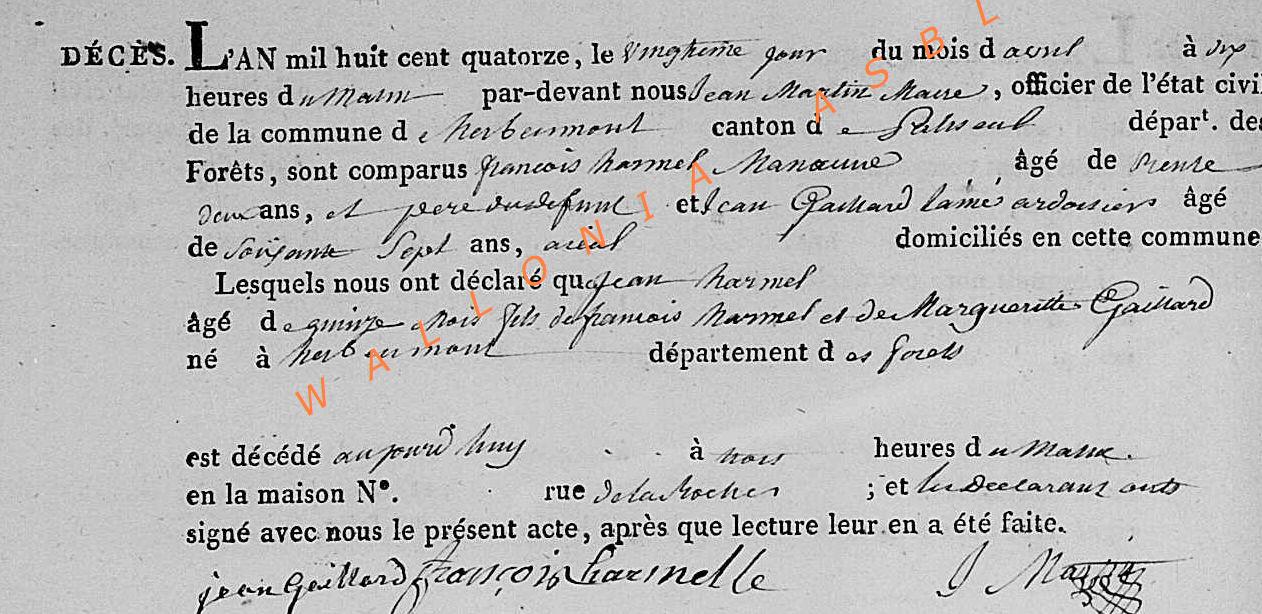 DÉCÈS. L'AN mil huit cent quatorze, le vingtieme jour du mois d avril à dix
heures du Matin par-devant nous Jean Martin Maire, officier de l'état civil
de la commune d e herbeumont canton d e Paliseul départ. des
Forêts, sont comparus françois harmel Manœuvre âgé de trente
deux ans, et pere du defunt et Jean Gaillard lainé ardoisier âgé
de Soixante Sept ans, aieul domiciliés en cette commune
Lesquels nous ont déclaré que jean harmel
âgé de quinze mois fils de francois harmel et de Margueritte Gaillard
né à herbeumont département d es forets
est décédé aujourd'huy à trois heures du Matin.
en la maison N°. rue de la Rocher ; et les Declarants onts
signé avec nous le présent acte, après que lecture leur en a été faite.
jean Gaillard françois harmelle J
WALLONIA ASBL